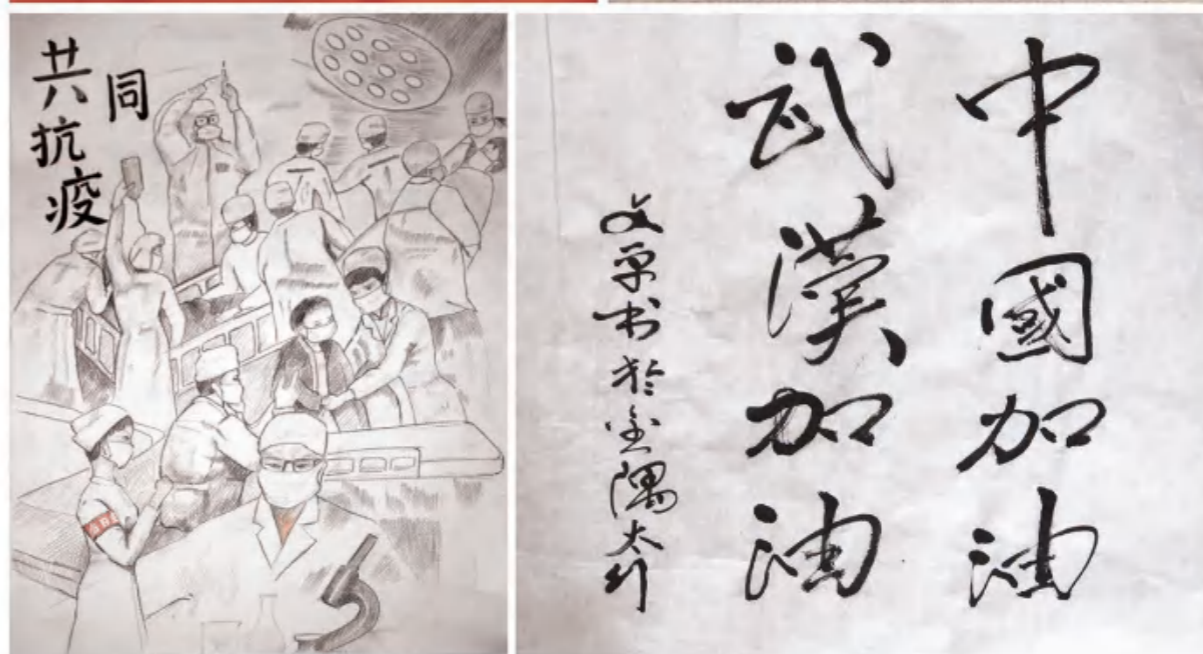 共同
抗疫
中國加油
武漢加油
文平书於金隅太行